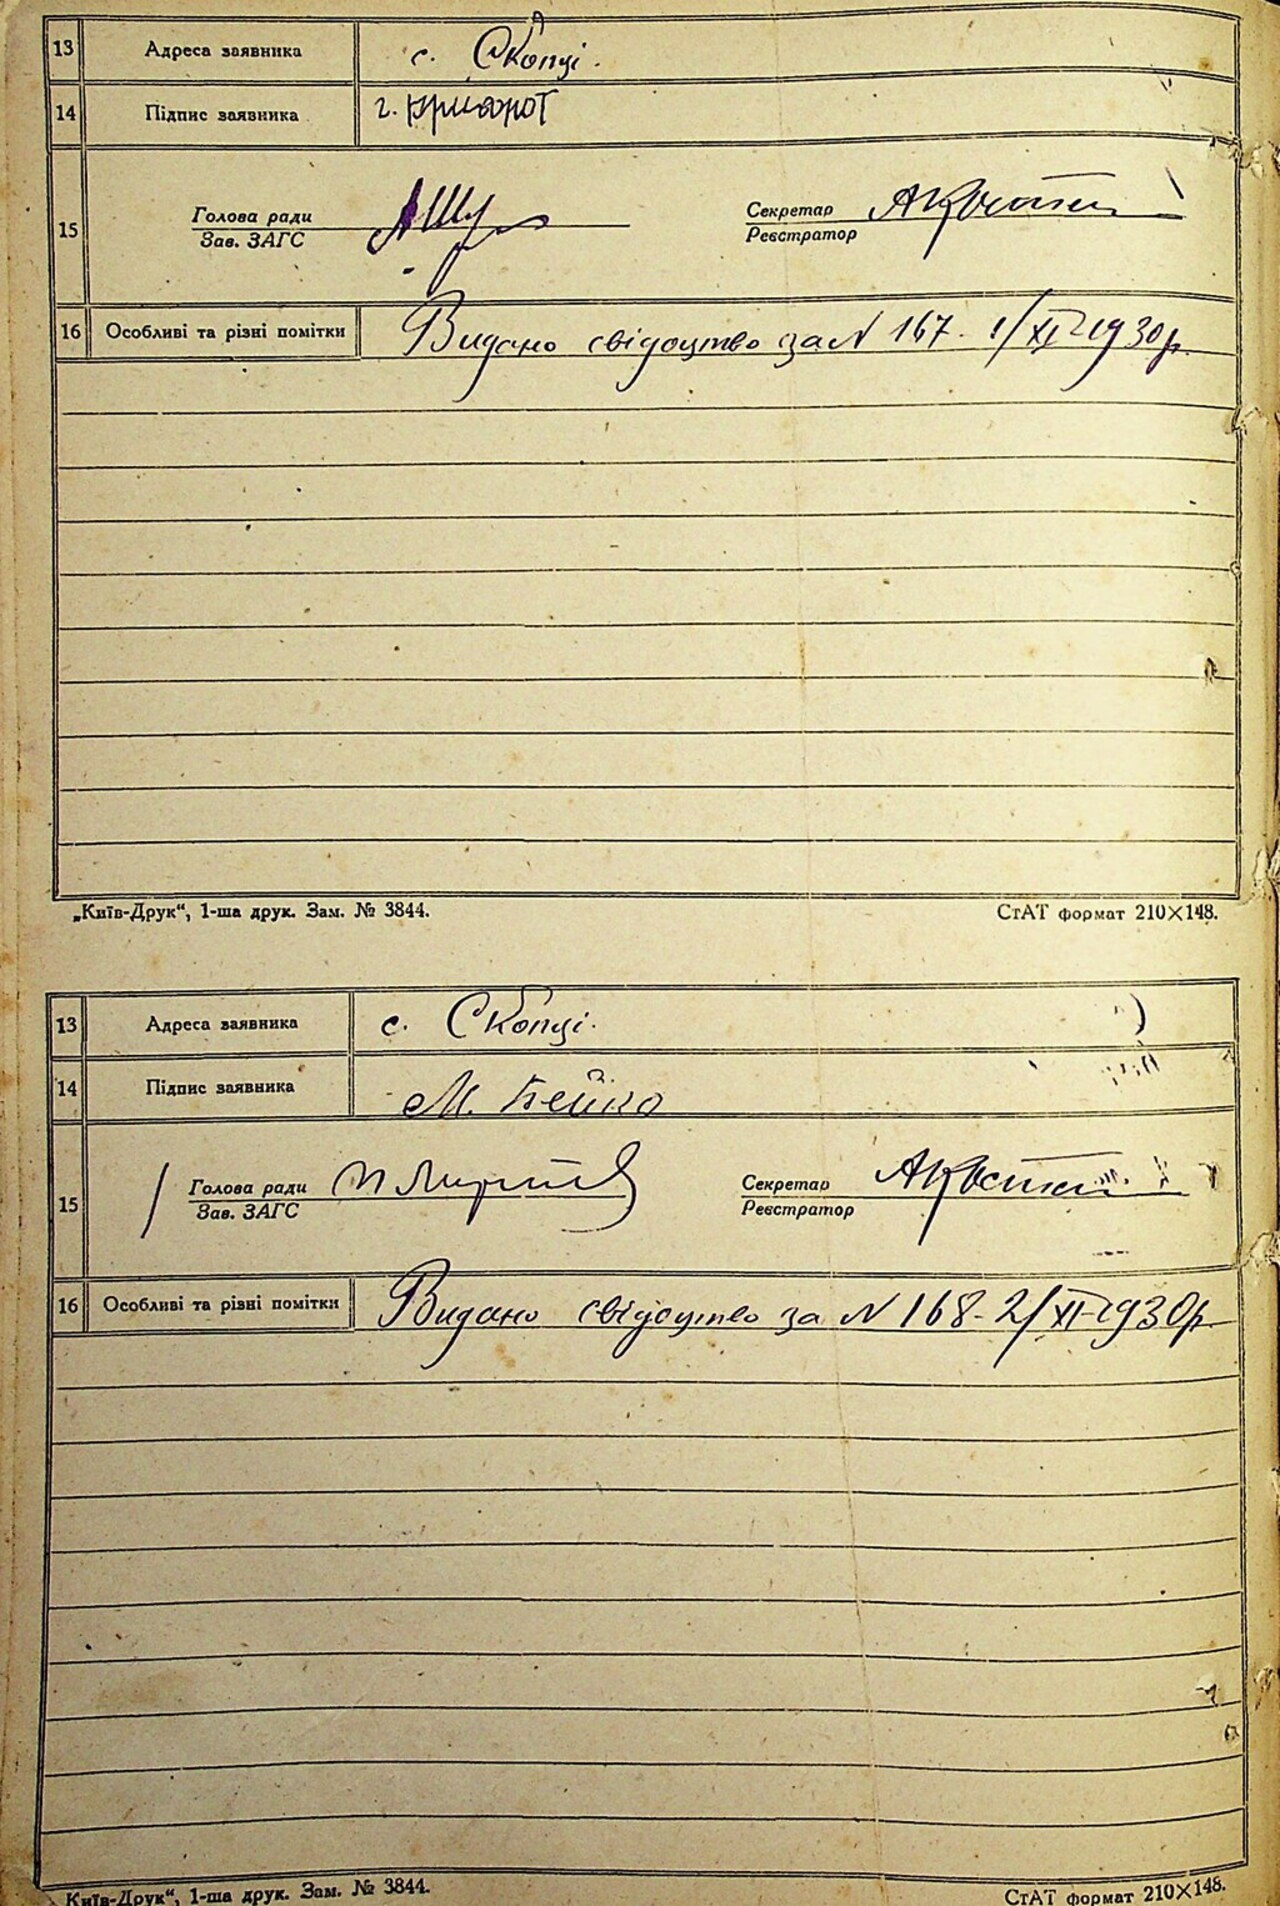 13 Адреса заявника с. Скопці.
14 Підпис заявника г.
15 Голова ради Секретар
Зав. ЗАГС Реєстратор
16 Особливі та різні помітки Видано свідоцтво за N 167. 1/XI-1930р.
„Київ-Друк“, 1-ша друк. Зам. № 3844. СтАТ формат 210×148.
13 Адреса заявника с. Скопці.
14 Підпис заявника М. Бейко
15 Голова ради Секретар
Зав. ЗАГС Реєстратор
16 Особливі та різні помітки Видано свідоцтво за N 168-2/XI-1930р.
Київ-Друк“, 1-ша друк. Зам. № 3844. СтАТ формат 210×148.